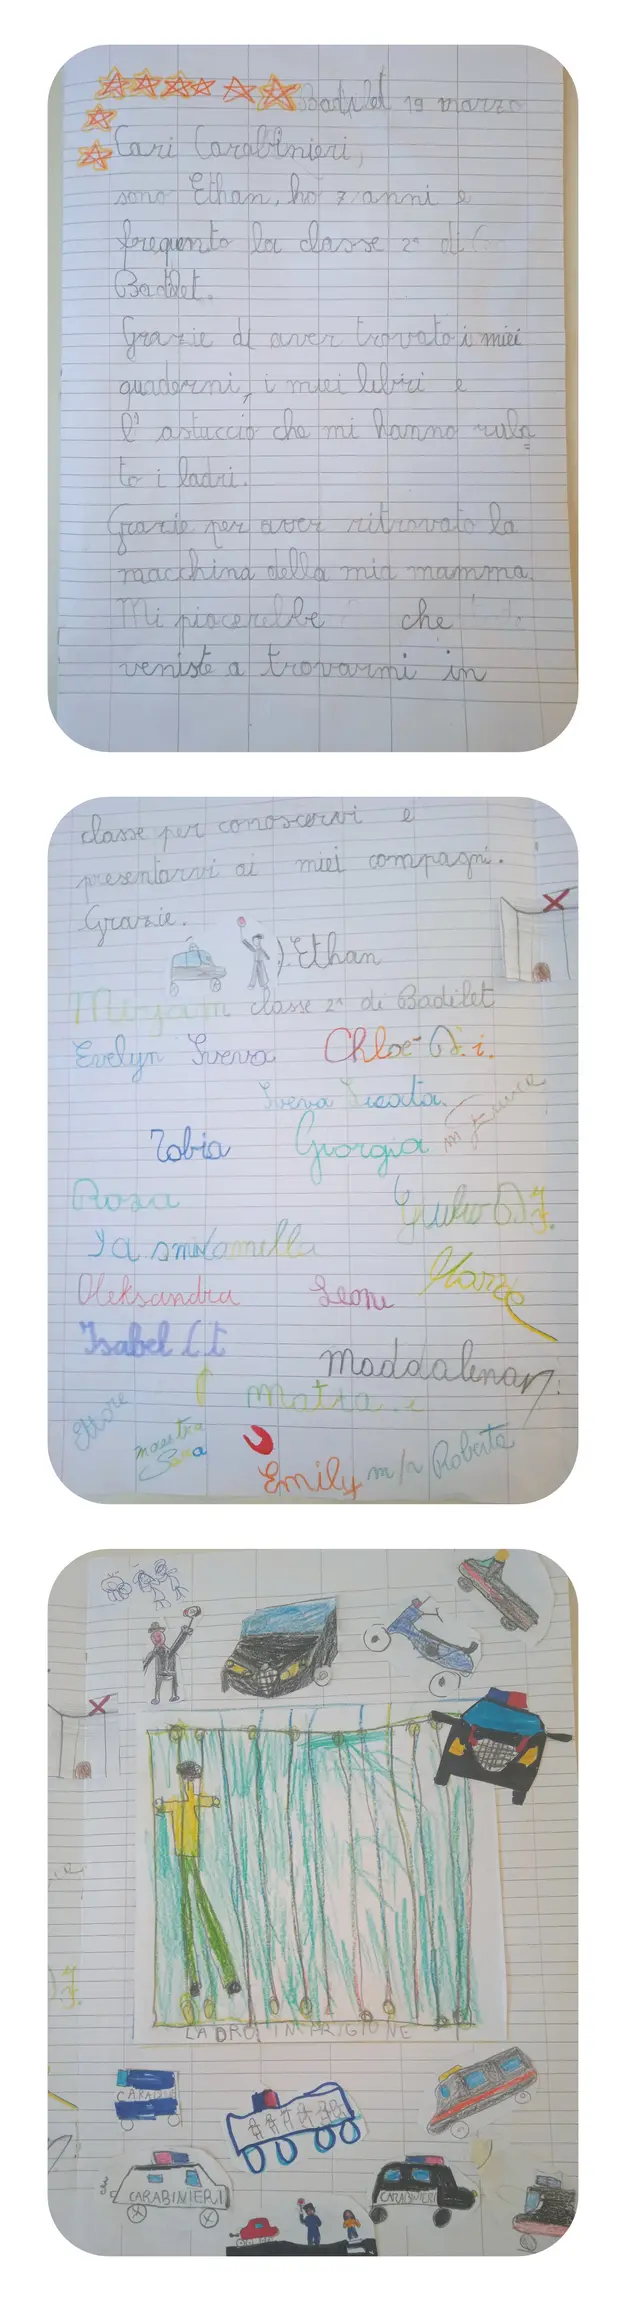 Badilet 19 marzo
Cari Carabinieri,
sono Ethan, ho 7 anni e
frequento la classe 2ª di
Badilet.
Grazie di aver trovato i miei
quaderni, i miei libri e
l'astuccio che mi hanno ruba
to i ladri.
Grazie per aver ritrovato la
macchina della mia mamma.
Mi piacerebbe che
veniste a trovarmi in
classe per conoscervi e
presentarvi ai miei compagni.
Grazie.
Ethan
Miryam classe 2ª di Badilet
Evelyn Sveva Chloe D. i.
Sveva
Tobia Giorgia
Rosa Giulio
Aleksandra Leone Marzo
Isabel
Maddalena
Mattia
Ettore
maestra
Sara
Emily Roberta
LADRO IN PRIGIONE
CARABINIERI
CARABINIERI